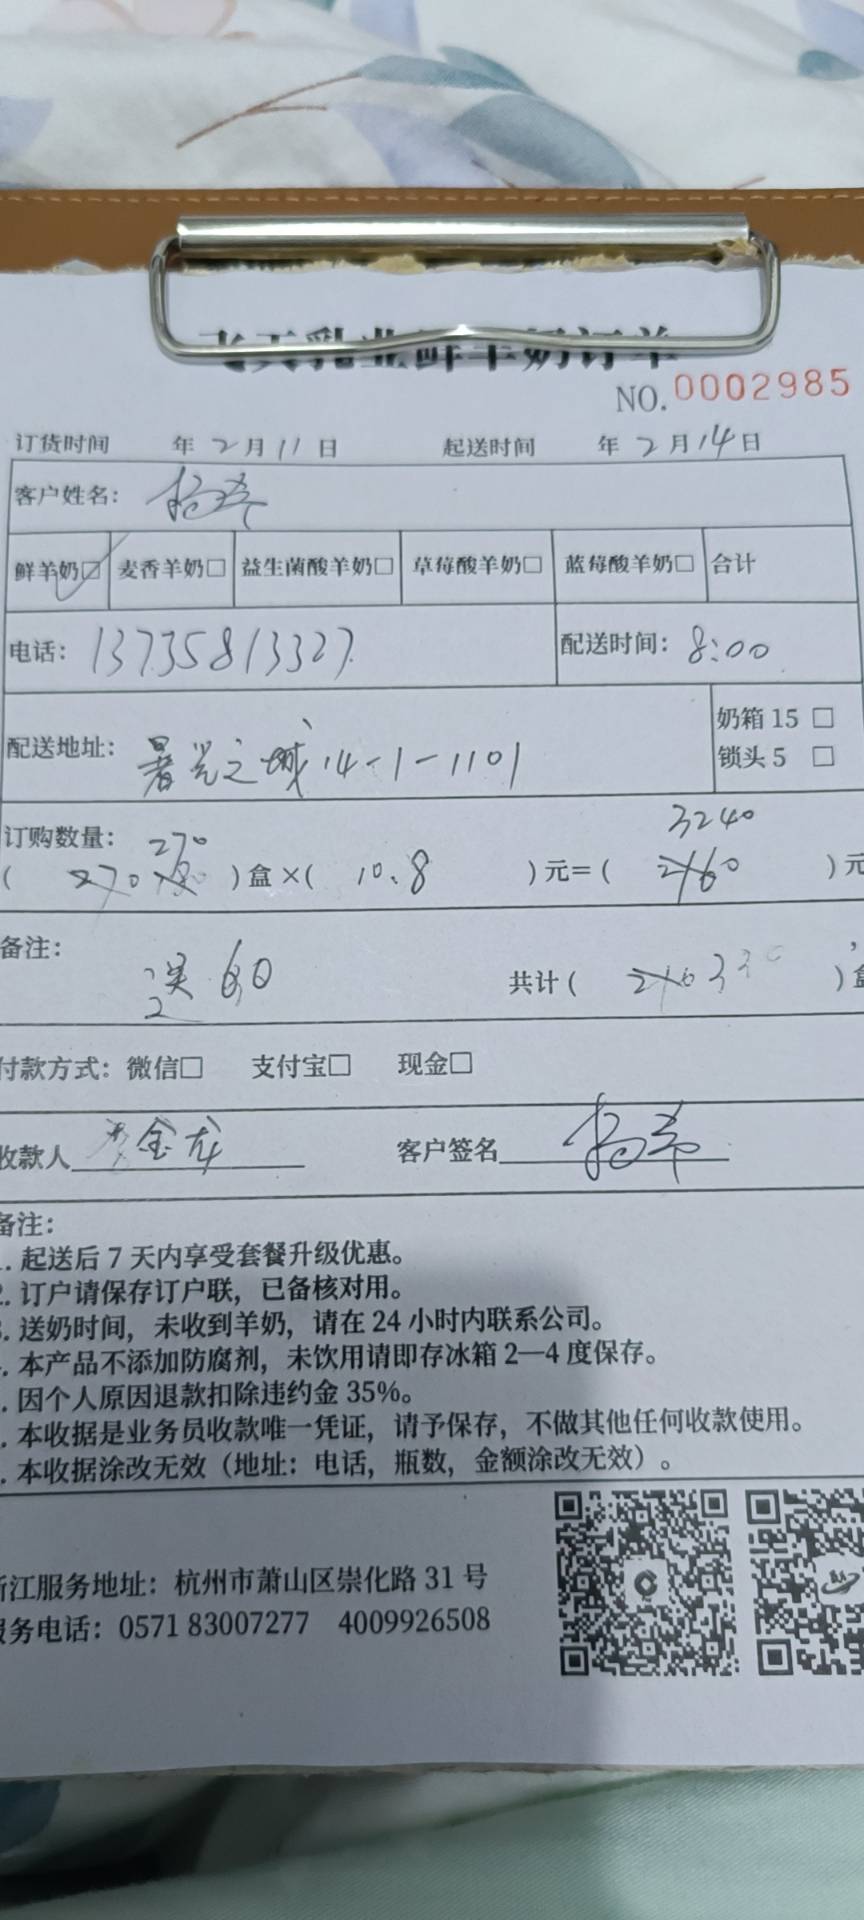 飞天乳业鲜羊奶订单
NO.0002985
订货时间 年 2 月 11 日 起送时间 年 2 月 14 日
客户姓名：
鲜羊奶☑ 麦香羊奶□ 益生菌酸羊奶□ 草莓酸羊奶□ 蓝莓酸羊奶□ 合计
电话：13735813327 配送时间：8:00
奶箱 15 □
配送地址：暑光之城 14-1-1101
锁头 5 □
3240
订购数量：270
( 270 180 )盒×( 10.8 )元=( 2160 )元
备注：
送 60 共计( 210 330 )盒
付款方式：微信□ 支付宝□ 现金□
收款人 李金龙 客户签名
备注：
. 起送后 7 天内享受套餐升级优惠。
2. 订户请保存订户联，已备核对用。
3. 送奶时间，未收到羊奶，请在 24 小时内联系公司。
. 本产品不添加防腐剂，未饮用请即存冰箱 2—4 度保存。
. 因个人原因退款扣除违约金 35%。
. 本收据是业务员收款唯一凭证，请予保存，不做其他任何收款使用。
. 本收据涂改无效（地址：电话，瓶数，金额涂改无效）。
浙江服务地址：杭州市萧山区崇化路 31 号
服务电话：0571 83007277 4009926508